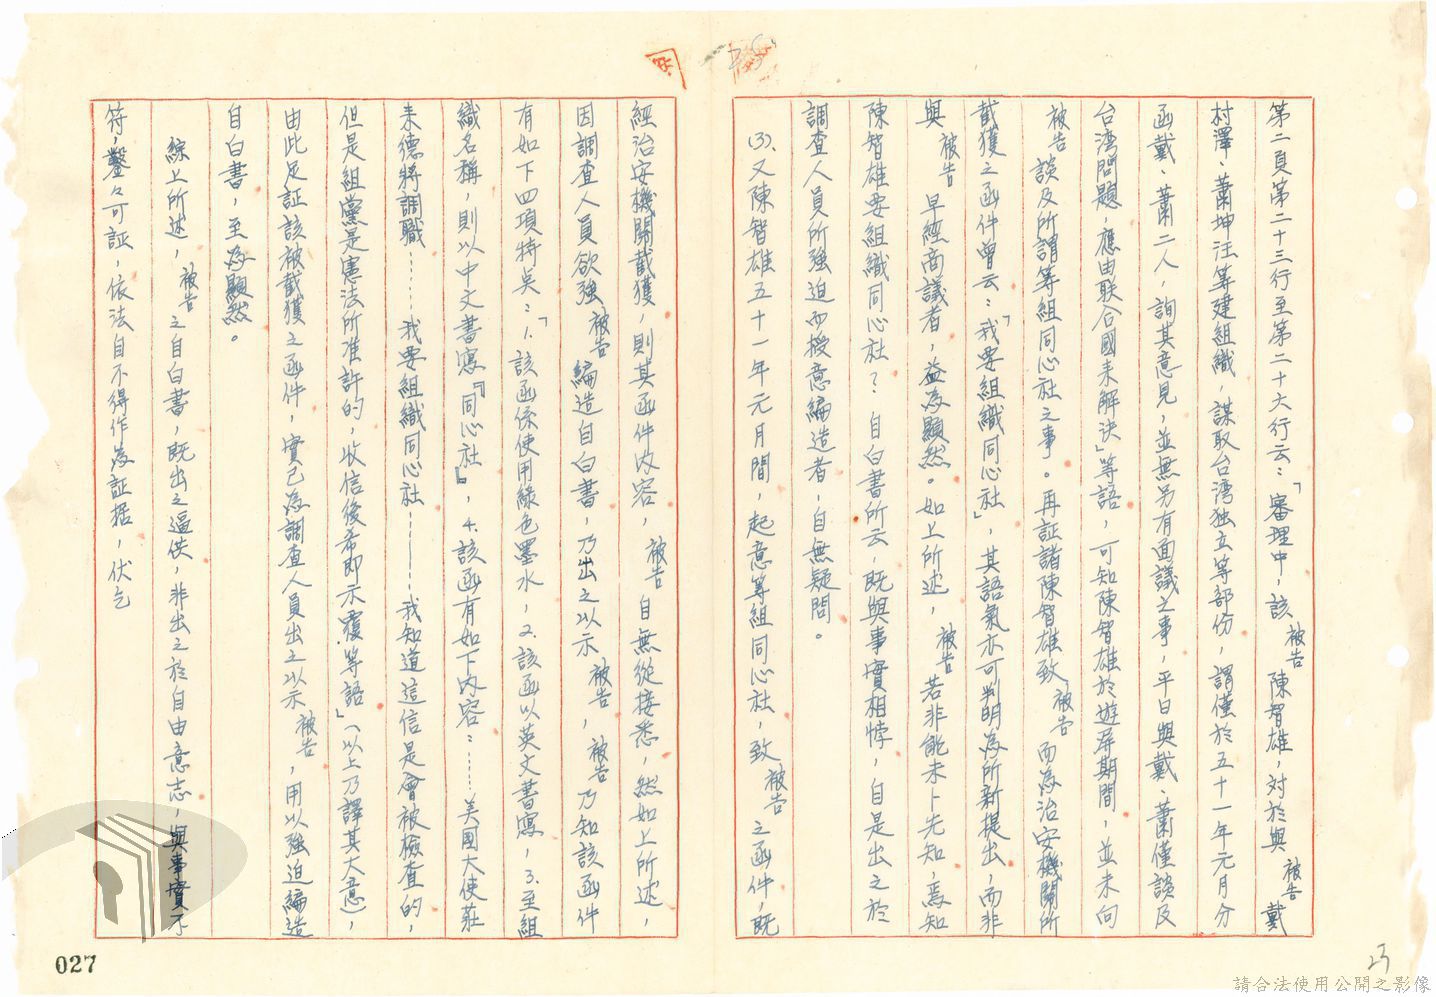 第二頁第二十三行至第二十六行云:「審理中,該被告陳智雄,對於與被告戴
村澤、蕭坤汪等建組織,謀取台湾独立等部份,謂僅於五十一年元月分
函戴、蕭二人,詢其意見,並無另有面議之事,平日與戴、蕭僅談及
台湾問題,應由联合國来解決」等語,可知陳智雄於遊屏期間,並未向
被告談及所謂等組同心社之事。再証諸陳智雄致被告而為治安機關所
截獲之函件曾云:「我要組織同心社」,其語氣亦可判明為所新提出,而非
與被告早經商議者,益為顯然。如上所述,被告若非能未卜先知,焉知
陳智雄要組織同心社?自白書所云,既與事實相悖,自是出之於
調查人員所強迫而授意編造者,自無疑問。
(3)、又陳智雄五十一年元月間,起意等組同心社,致被告之函件,既
經治安機關截獲,則其函件內容,被告自無從接悉,然如上所述,
因調查人員欲強被告編造自白書,乃出之以示被告,被告乃知該函件
有如下四項特点:「1.該函係使用綠色墨水,2.該函以英文書寫,3.至組
織名稱,則以中文書寫『同心社』,4.該函有如下內容:……美國大使莊
来德將調職……我要組織同心社……我知道這信是會被檢查的,
但是組黨是憲法所准許的,收信後希即示覆.等語」(以上乃譯其大意),
由此足証該被截獲之函件,實已為調查人員出之以示被告,用以強迫編造
自白書,至為顯然。
綜上所述,被告之自白書,既出之逼供,非出之於自由意志,與事實不
符,鑿々可証,依法自不得作為証据,伏乞
027
請合法使用公開之影像